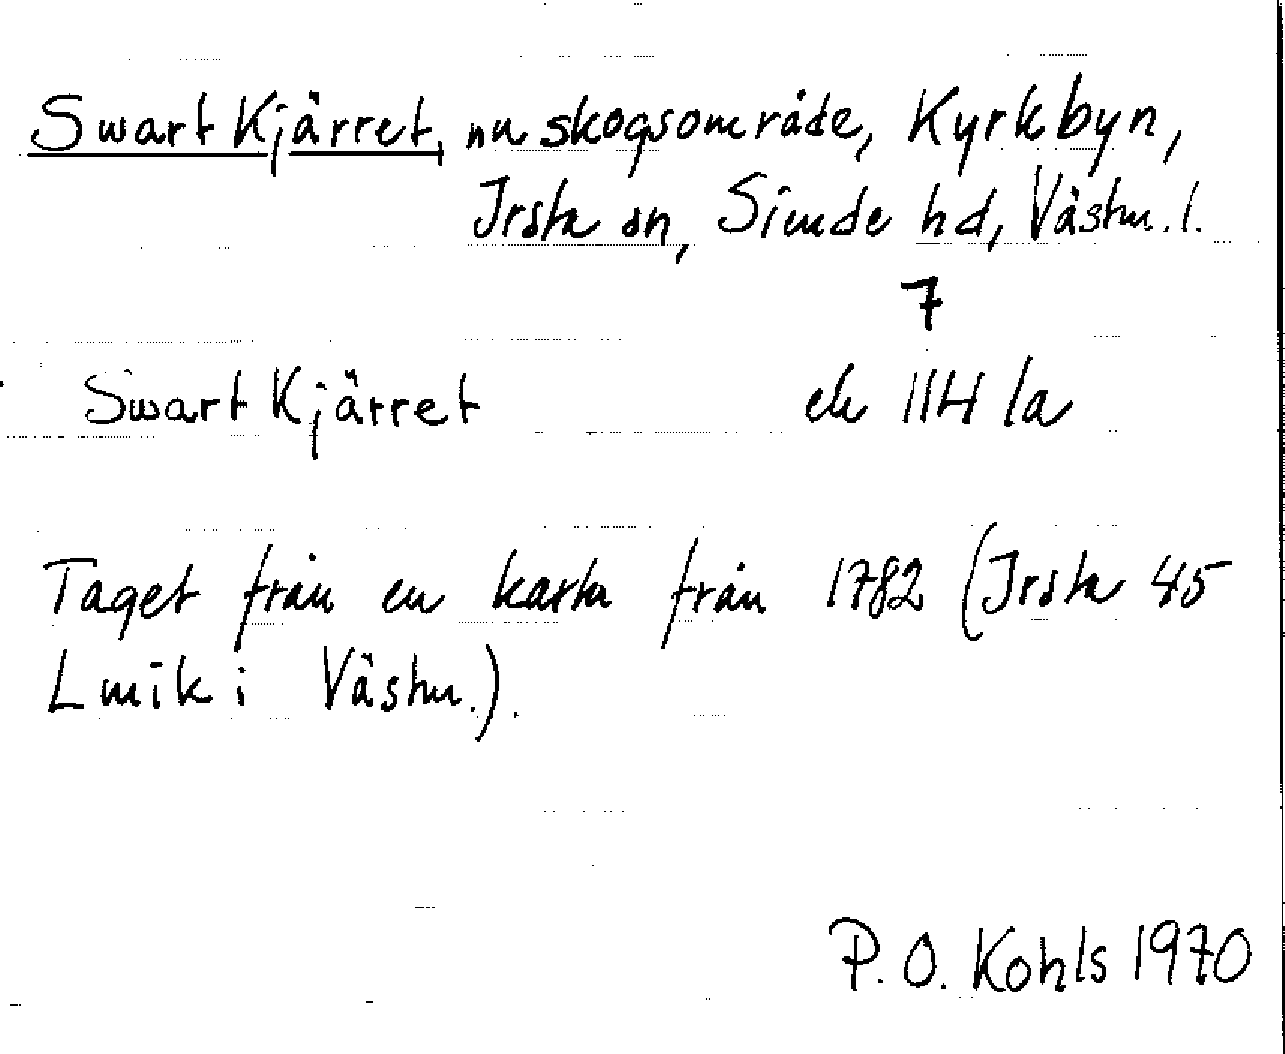 Swart Kjärret, nu skogsområde, Kyrkbyn,
Irsta sn, Siende hd, Västm. l.
7
Swart Kjärret ek 11H 1a
Taget från en karta från 1782 (Irsta 45
Lmik i Västm.).
P. O. Kohls 1970